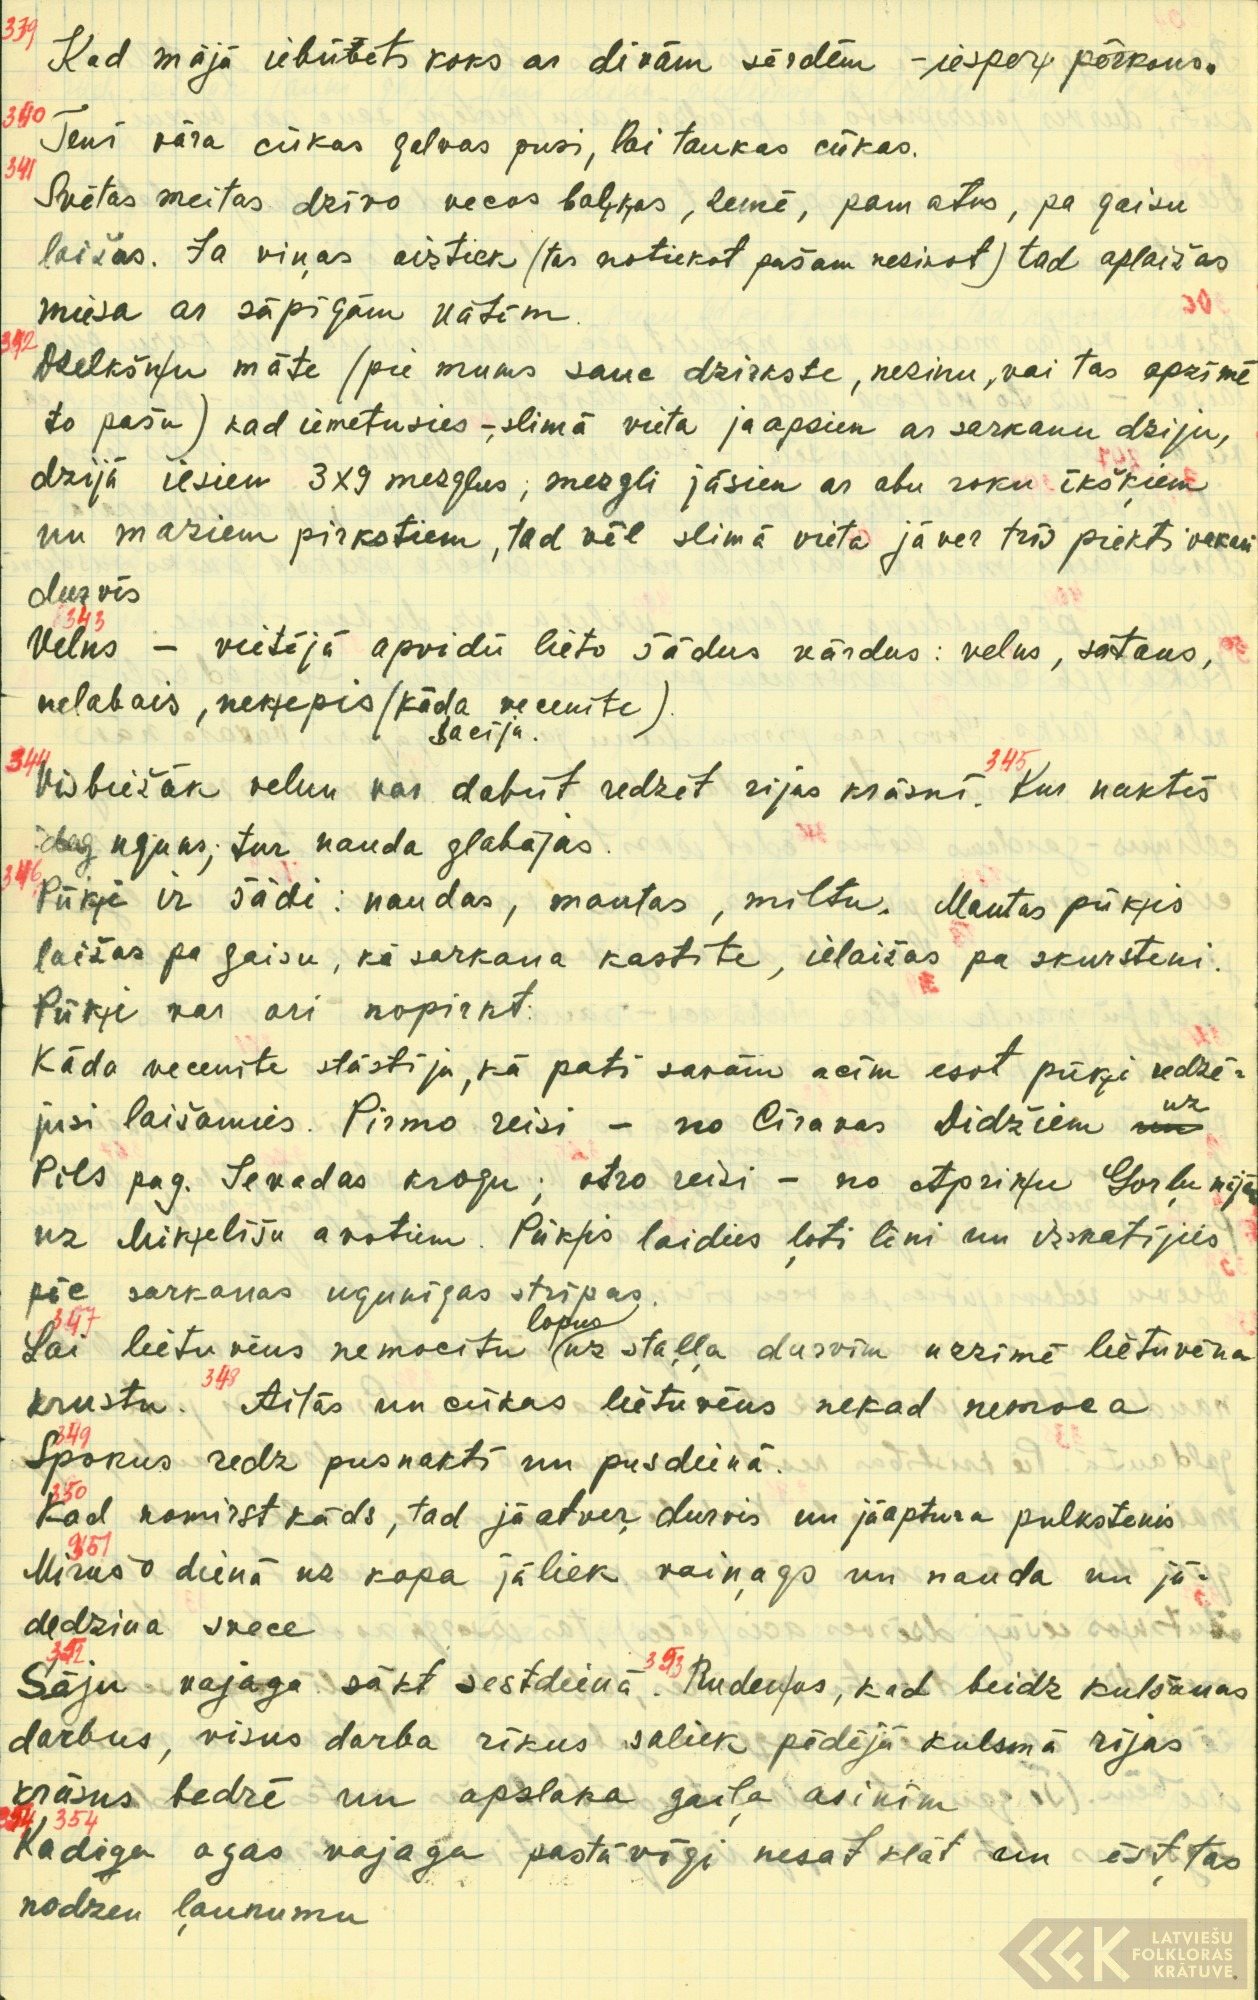 339
Kad mājā iebūvēts koks ar divām sērdēm - iesper pērkons.
340
Tenī vāra cūkas galvas pusi, lai taukas cūkas.
341
Svētas meitas dzīvo vecos baļķos, zemē, pamatos, pa gaisu
laižas. Ja viņas aiztiek (tas notiekot pašam nezinot) tad aplaižas
miesa ar sāpīgām vātīm.
342
Dzelkšņu māte (pie mums sauc dzirkste, nezinu, vai tas apzīmē
to pašu) kad iemetusies -, slimā vieta jaapsien ar sarkanu dziju,
dzijā iesien 3x9 mezglus; mezgli jāsien ar abu roku īkšķiem
un maziem pirkstiem, tad vēl slimā vieta jāver trīs piektvakari
durvīs
343
Velns - vietējā apvidū lieto šādus vārdus: velns, sātans,
nelabais, neķepis (kāda vecenīte)
sacīja.
344
Visbiežāk velnu var dabūt redzēt rijas krāsnī. 345 Kur naktīs
deg uguns, tur nauda glabājas.
346
Pūķi ir šādi: naudas, mantas, miltu. Mantas pūķis
laižas pa gaisu, kā sarkana kastīte, ielaižas pa skursteni.
Pūķi var arī nopirkt.
Kāda vecenīte stāstīja, kā pati savām acīm esot pūķi redzē-
jusi laižamies. Pirmo reisi - no Cīravas Didžiem uz
Pils pag. Ievadas krogu; otro reisi - no Apriķu Gorļu mājā
uz Miķelīšu avotiem. Pūķis laidies ļoti lēni un izskatījies
pēc sarkanas ugunīgas strīpas.
347
Lai lietuvēns nemocītu lopus uz staļļa durvīm uzzīmē lietuvēna
krustu. 348 Aitas un cūkas lietuvēns nekad nemoca
349
Spokus redz pusnaktī un pusdienā.
350
Kad nomirst kāds, tad jāatver durvis un jāaptura pulkstenis
351
Mirušo dienā uz kapa jāliek vainags un nauda un jā-
dedzina svece
352
Sēju vajaga sākt sestdienā. 353 Rudeņos, kad beidz kulšanas
darbus, visus darba rīkus saliek pēdējā kulsmā rijas
krāsns bedrē un apslaka gaiļa asinīm
354 354
Kadiga ogas vajaga pastāvīgi nesat klāt un ēst, tas
nodzen ļaunumu
LATVIEŠU
FOLKLORAS
KRĀTUVE